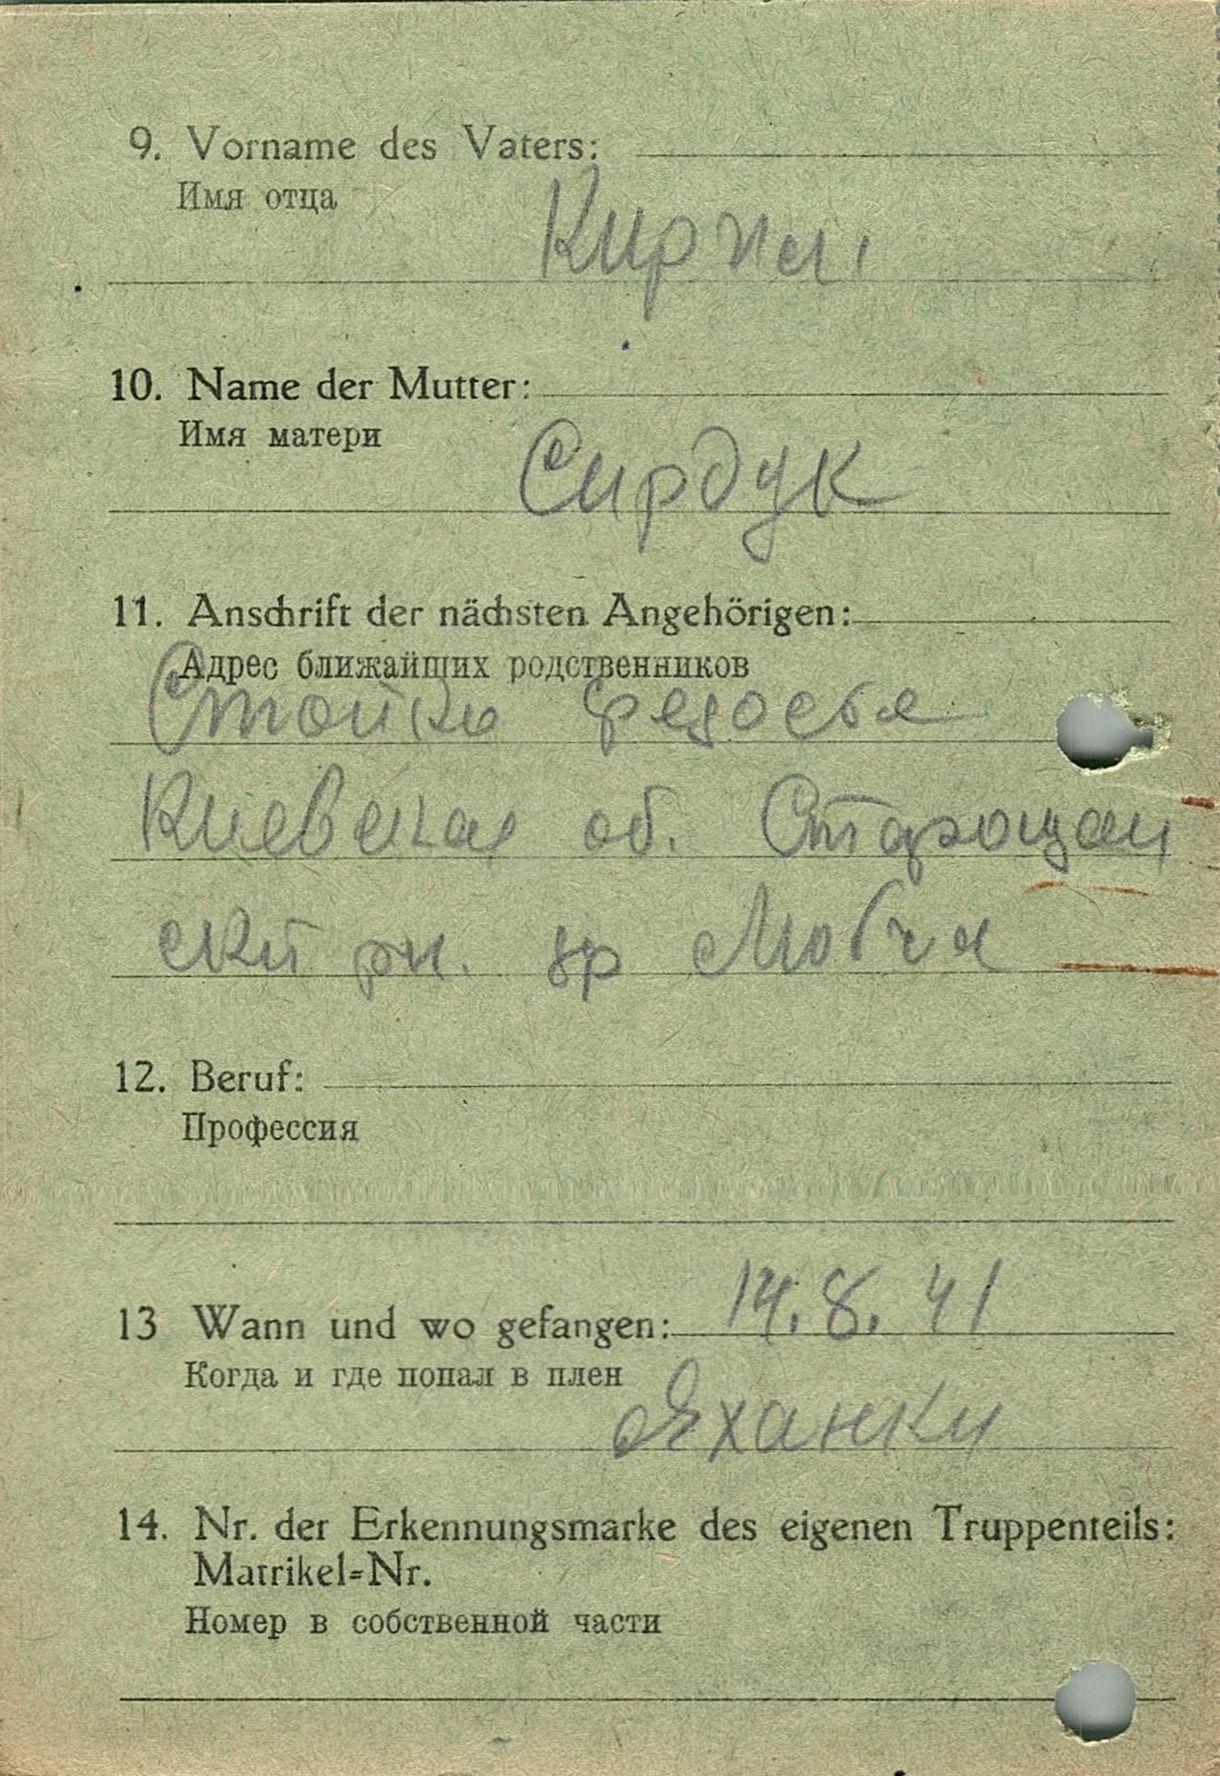 9. Vorname des Vaters:
Имя отца
Кирил
10. Name der Mutter:
Имя матери
Сирдук
11. Anschrift der nächsten Angehörigen:
Адрес ближайщих родственников
Стойко Федосья
Киевская об. Старощан
ски рн.
13 Wann und wo gefangen: 14.8.41
Когда и где попал в плен
Яханки
12. Beruf:
Профессия
14. Nr. der Erkennungsmarke des eigenen Truppenteils:
Matrikel-Nr.
Номер в собственной части